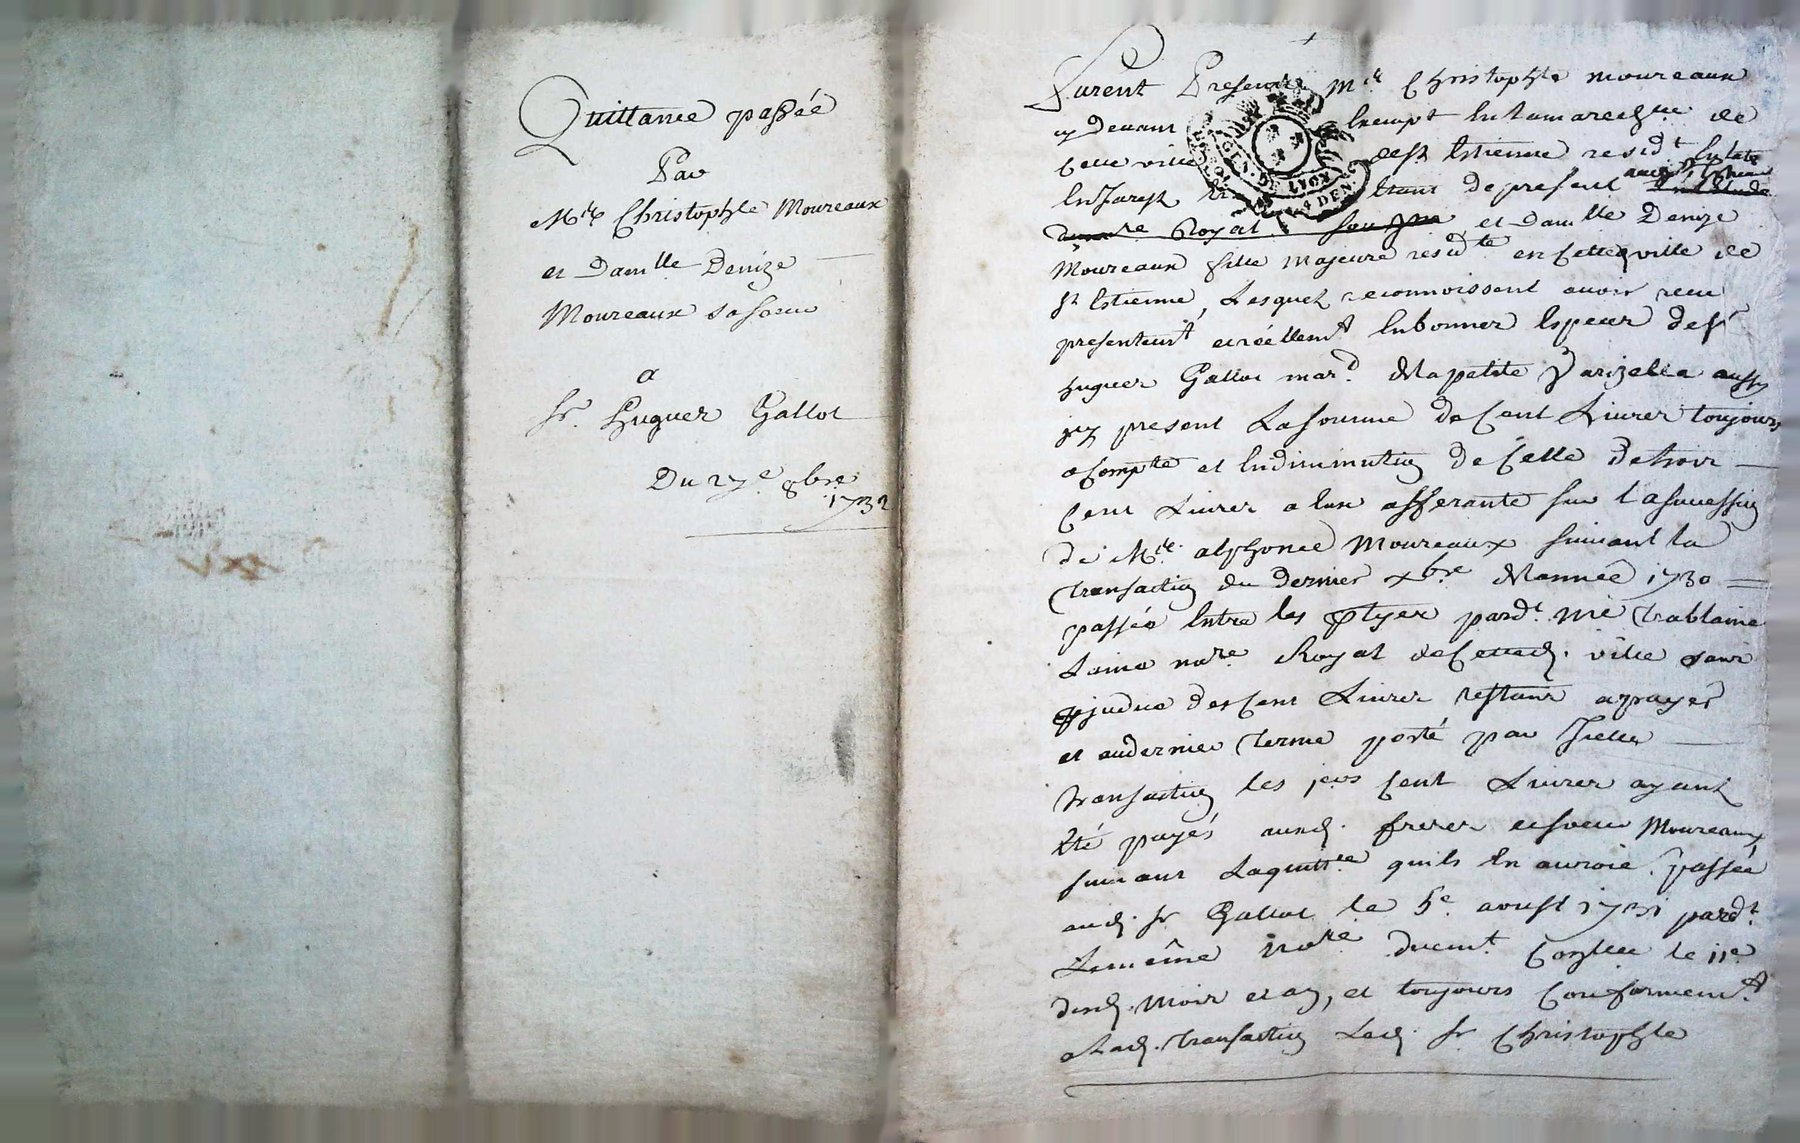 Quittance passée
Par
Mre Christophle Moureaux
et Damlle Denize
Moureaux sa soeur
a
Sr. Huguer Gallot
Du 27e 8bre
1732
Furent Presents Mre Christophle moureaux
cy devant exempt en la marechée de
cette ville de St Estienne residt
en Jarest étant de present
Royal et Damlle Denize
Moureaux fille majeure residte en cette ville de
St Estienne, Lesquels reconnoissent avoir receu
presentemt et réellemt en bonnes especes de Sr
huguer Gallot mard. de la petite Varizelle aussy
icy present La somme de Cent Livres toujours
a compte et en diminution de Celle de trois
Cent Livres a eux afferante sur la succession
de Mre. alphonce Moureaux suivant la
transaction du dernier xbre de l'année 1730
passée entre les ptyes pardt. me trablaine
Laine nore Royal de Cetted. ville sans
pjudice des Cent Livres restant a payer
et au dernier terme porté par Icelle
transaction les iers Cent Livres ayant
été payés auxd. freres et soeur Moureaux
suivant La quittce quils en auroie passée
aud. Sr Gallot le 5e. aoust 1731 pardt.
Le même nore duemt Conllée le 11e
desd. mois et an, et toujours Conformemt
a Lad. transaction Led. Sr Christophle
GEN. DE LYON